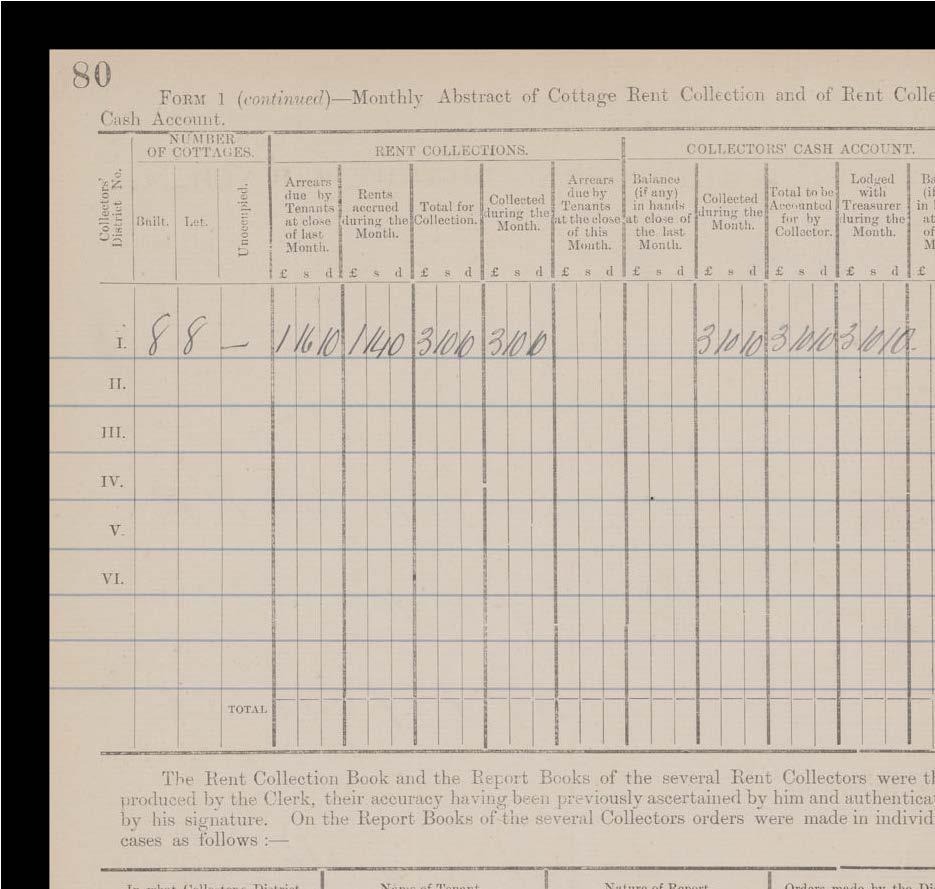 80
FORM 1 (continued)—Monthly Abstract of Cottage Rent Collection and of Rent Colle
Cash Account.
Collectors' District No.
NUMBER OF COTTAGES.
RENT COLLECTIONS.
COLLECTORS' CASH ACCOUNT.
Built.
Let.
Unoccupied.
Arrears due by Tenants at close of last Month.
Rents accrued during the Month.
Total for Collection.
Collected during the Month.
Arrears due by Tenants at the close of this Month.
Balance (if any) in hands at close of the last Month.
Collected during the Month.
Total to be Accounted for by Collector.
Lodged with Treasurer during the Month.
£ s d £ s d £ s d £ s d £ s d £ s d £ s d £ s d £ s d £
I. 8 8 — 1 16 10 1 14 0 3 10 10 3 10 10 3 10 10 3 10 10 3 10 10
II.
III.
IV.
V.
VI.
TOTAL
The Rent Collection Book and the Report Books of the several Rent Collectors were th
produced by the Clerk, their accuracy having been previously ascertained by him and authenticat
by his signature. On the Report Books of the several Collectors orders were made in individ
cases as follows :—
In what Collectors District
Name of Tenant
Nature of Report
Orders made by the Di